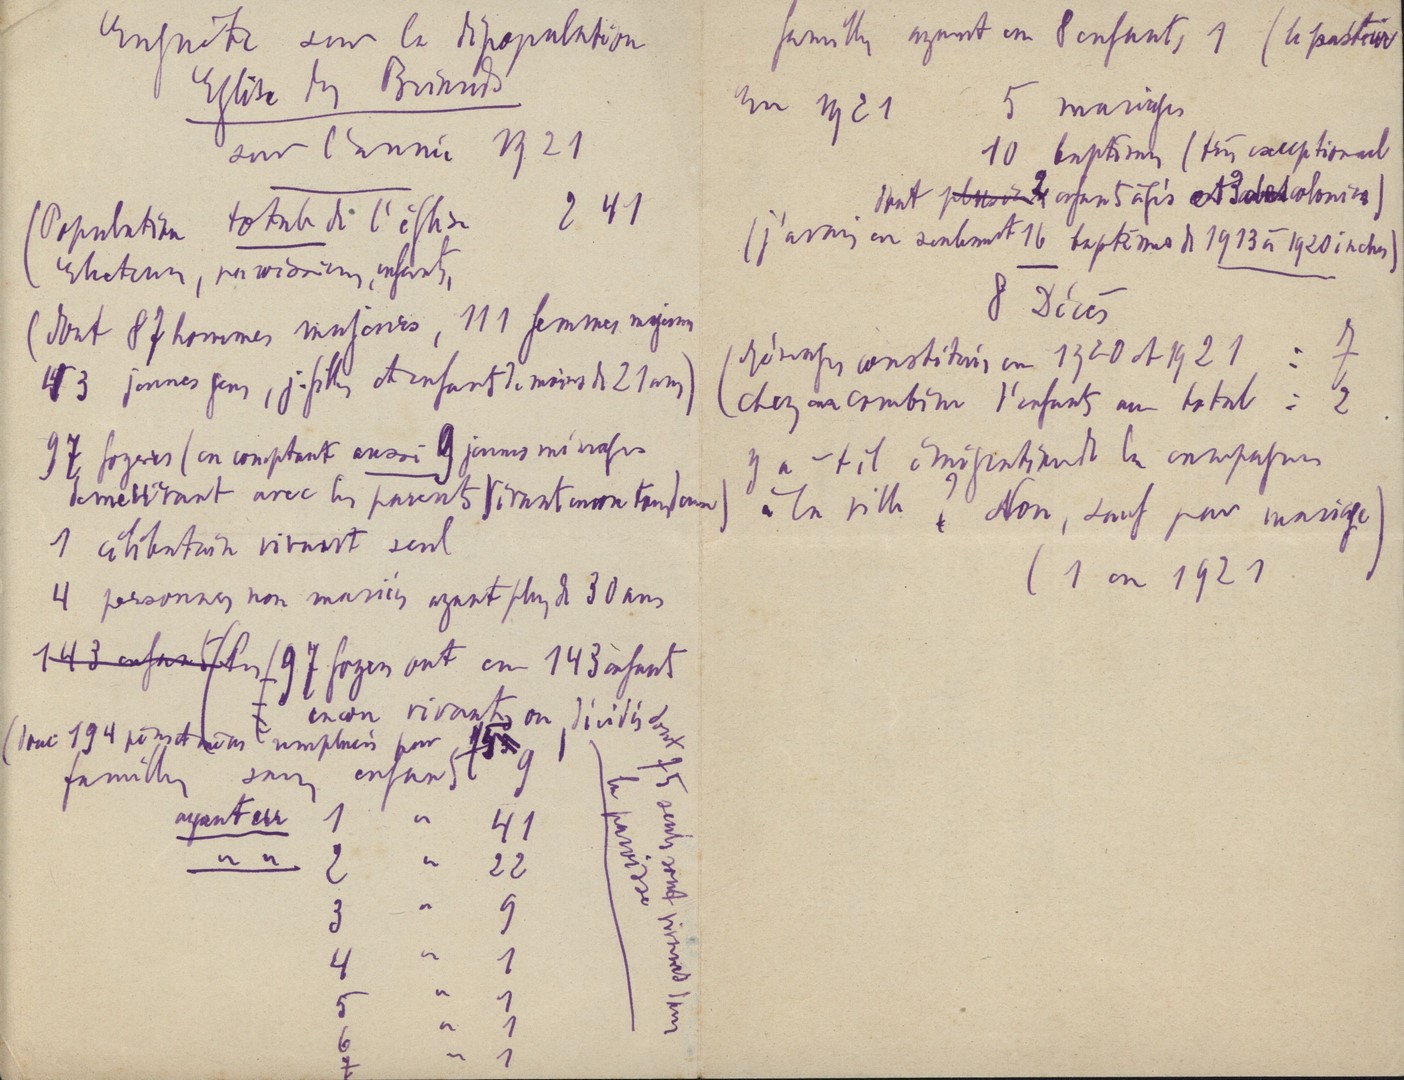 Enquête sur la dépopulation
Eglise des
sur l'année 1921
(Population totale de l'église 241
Electeurs, paroissiens, enfants,
(dont 87 hommes majeurs, 111 femmes majeures
43 jeunes gens, j. filles et enfants de moins de 21 ans)
97 foyers (en comptant aussi 9 jeunes ménages
demeurant avec les parents vivant encore tous deux)
1 célibataire vivant seul
4 personnes non mariées ayant plus de 30 ans
143 enfants
97 foyers ont eu 143 enfants
encore vivants ou décédés
(donc 194 pères et mères remplacés par
familles sans enfants 9
ayant eu 1 " 41
" " 2 " 22
3 " 9
4 " 1
5 " 1
6 " 1
7 " 1
dont 75 seuls sont vivants dans
la paroisse
familles ayant eu 8 enfants, 1 (le pasteur
En 1921 5 mariages
10 baptêmes (très exceptionnel
dont 2 enfants âgés et 3 colonies)
(j'avais eu seulement 16 baptêmes de 1913 à 1920 inclus)
8 Décès
(Ménages constitués en 1920 et 1921 : 7
(chez eux combien d'enfants au total : 2
y a-t-il émigration de la campagne
à la ville ? Non, sauf par mariage)
(1 en 1921